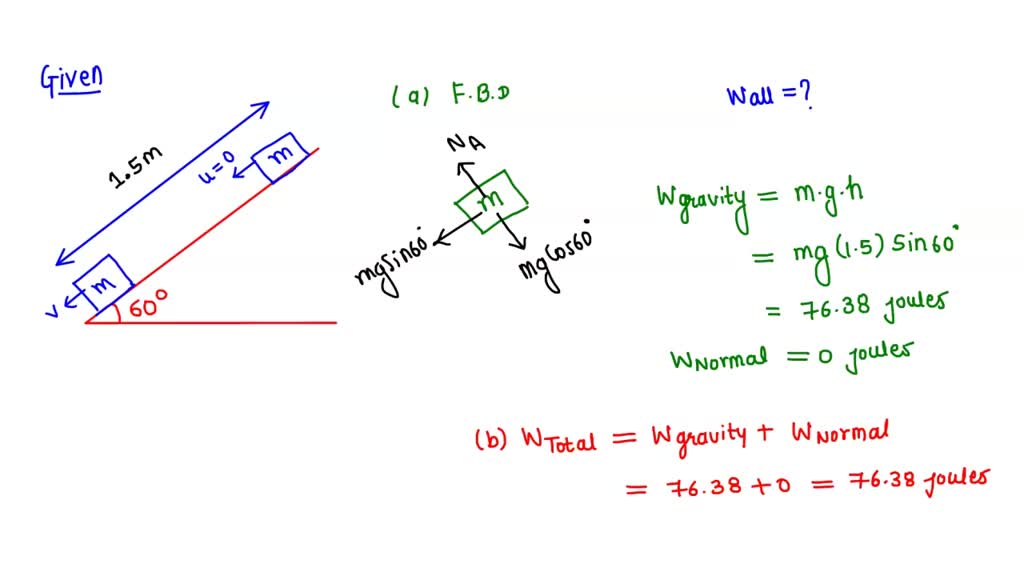 Given
1.5m
u=0
m
m
v
60°
(a) F.B.D
NA
m
mgsin60°
mgcos60°
Wall=?
Wgravity = m.g.h
= mg(1.5) Sin60°
= 76.38 joules
WNormal = 0 joules
(b) WTotal = Wgravity + WNormal
= 76.38 +0 = 76.38 joules